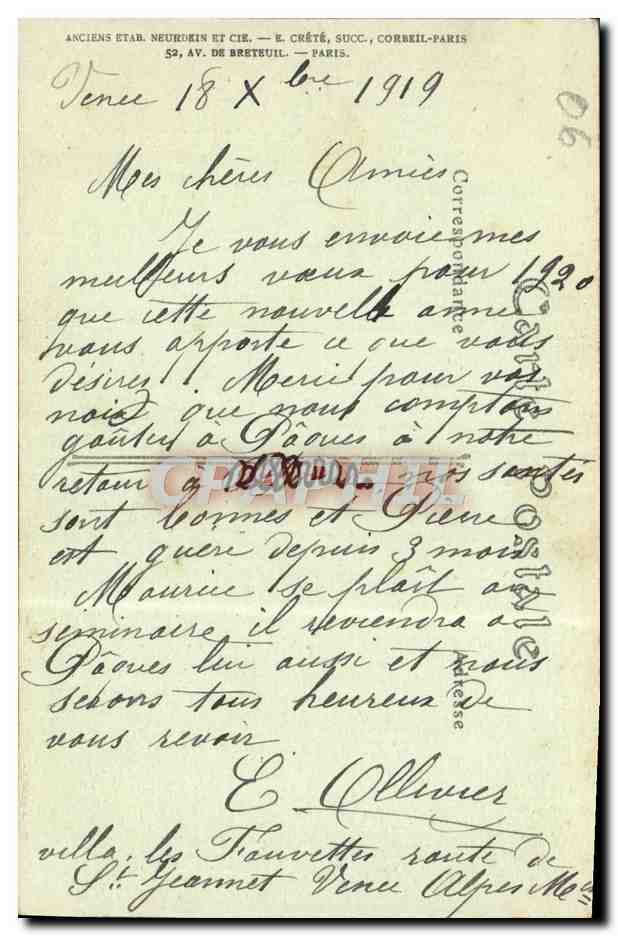 ANCIENS ETAB. NEURDEIN ET CIE. — E. CRÉTÉ, SUCC., CORBEIL-PARIS
52, AV. DE BRETEUIL. — PARIS.
Vence 18 Xbre 1919
06
Mes chères Amies
Je vous envoie mes
meilleurs vœux pour 1920
que cette nouvelle année
vous apporte ce que vous
désirez. Merci pour vos
noix que nous comptons
goûter à Pâques à notre
retour à nos santés
sont bonnes et Pierre
est guéri depuis 3 mois
Maurice se plaît au
séminaire il reviendra a
Pâques lui aussi et nous
serons tous heureux de
vous revoir
E. Ollivier
villa. les Fauvettes route de
St. Jeannet Vence Alpes Mes
Carte Postale
Correspondance
Adresse